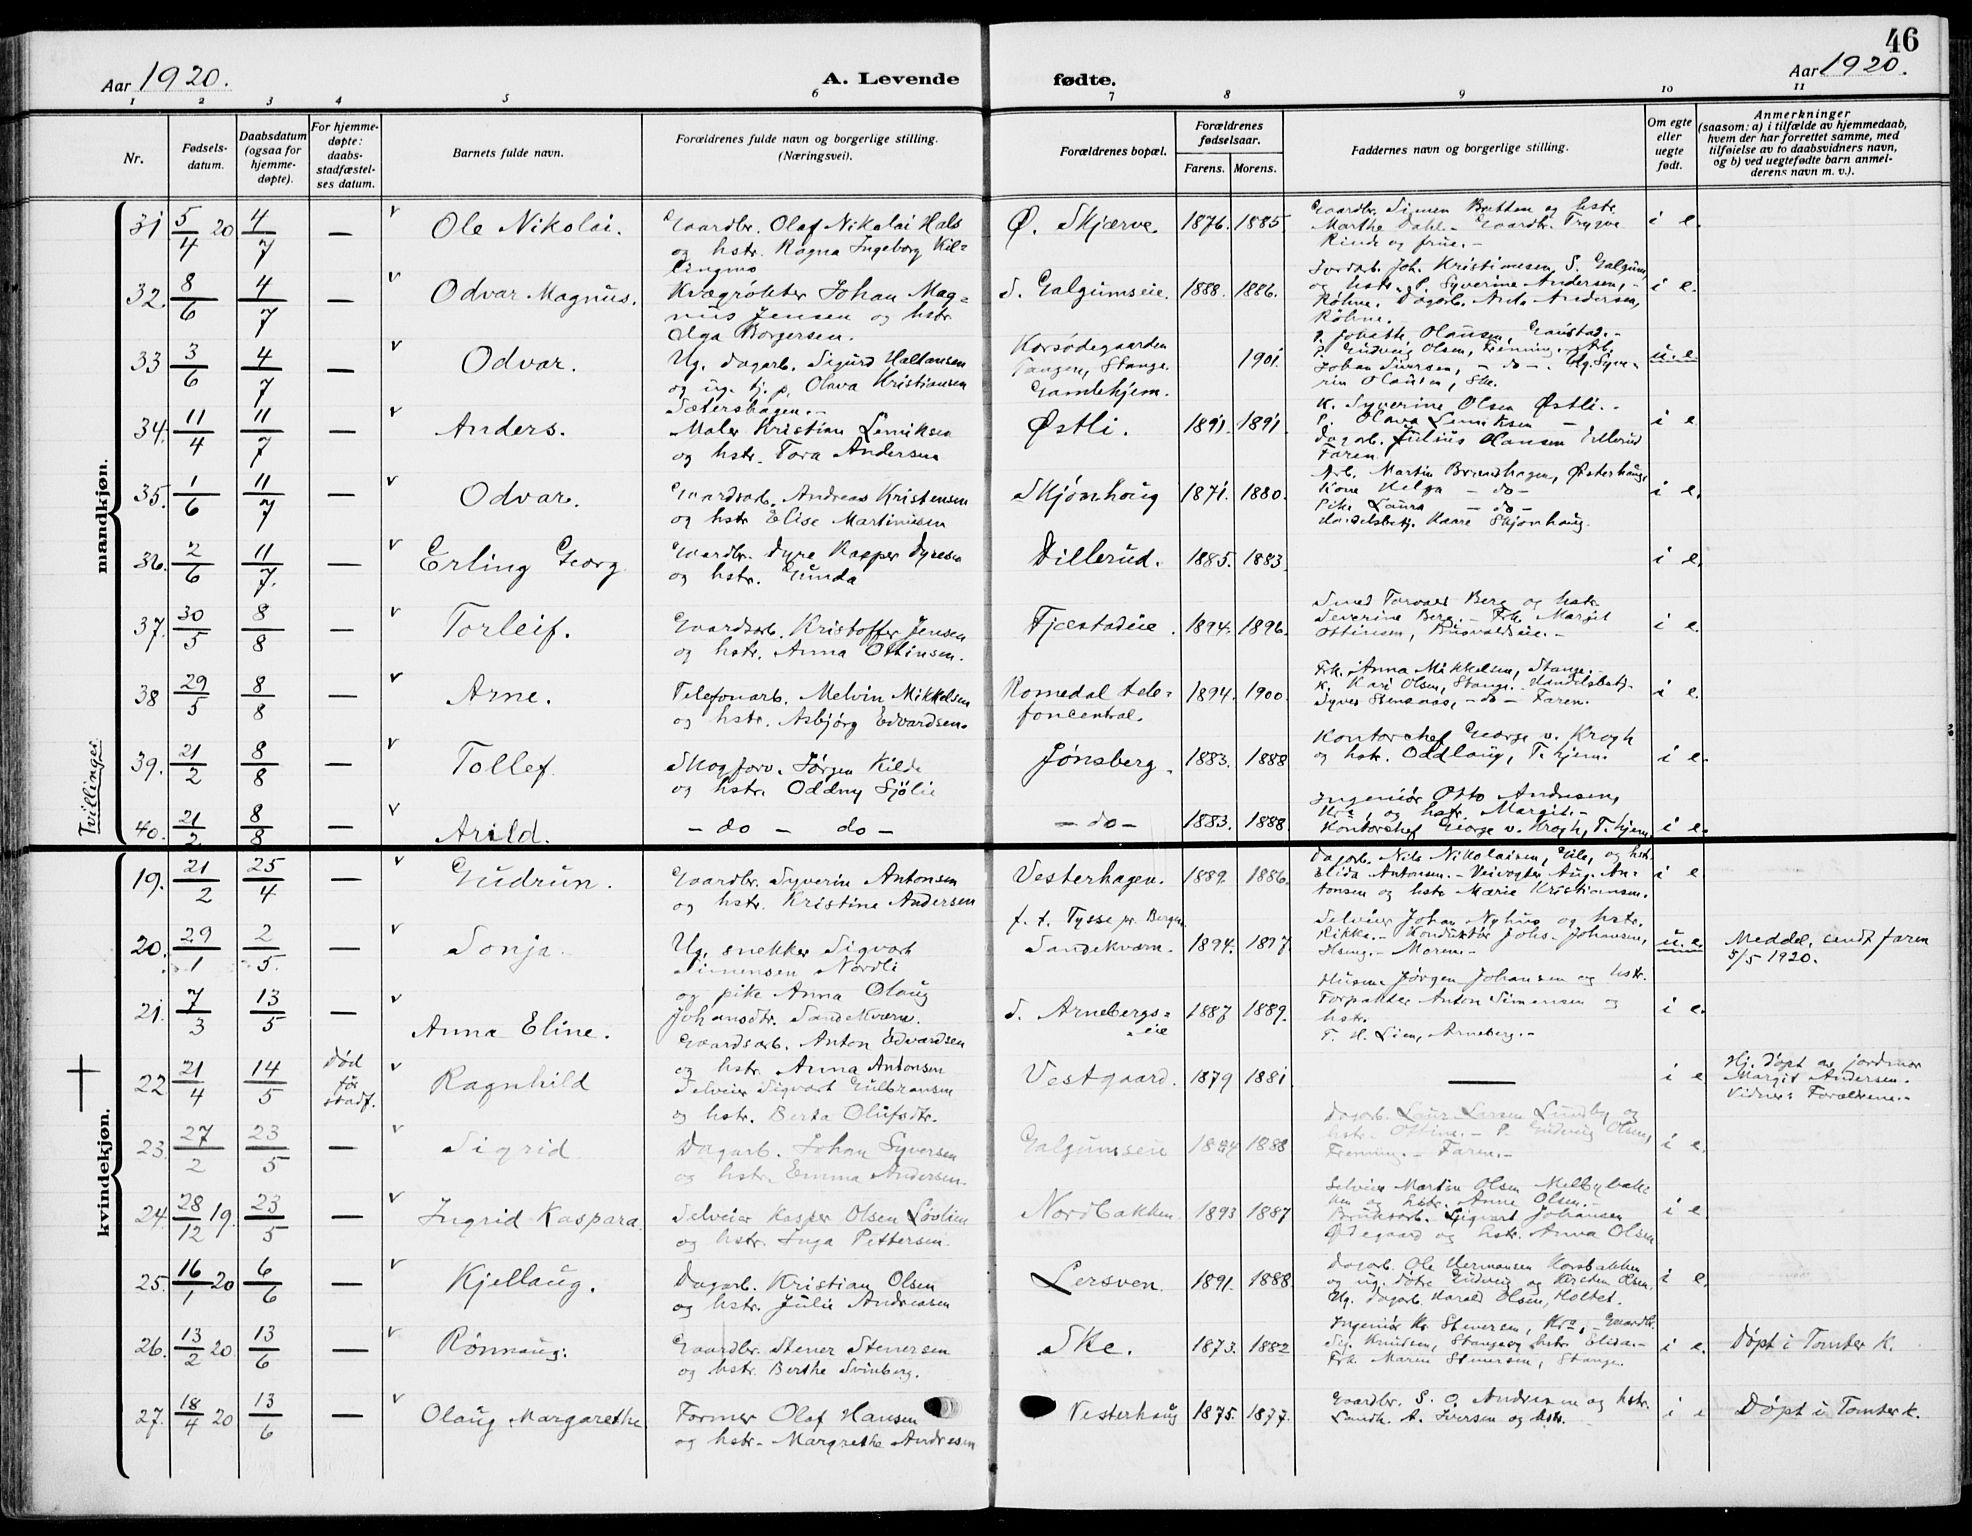 46
Aar 1920.
A. Levende
fødte.
Aar 1920.
1 2 3 4 5 6 7 8 9 10 11
Nr.
Fødsels-
datum.
Daabsdatum
(ogsaa for
hjemme-
døpte).
For hjemme-
døpte:
daabs-
stadfæstel-
ses datum.
Barnets fulde navn.
Forældrenes fulde navn og borgerlige stilling.
(Næringsvei).
Forældrenes bopæl.
Forældrenes
fødselsaar.
Farens. Morens.
Faddernes navn og borgerlige stilling.
Om egte
eller
uegte
født.
Anmerkninger
(saasom: a) i tilfælde av hjemmedaab,
hvem der har forrettet samme, med
tilføielse av to daabsvidners navn,
og b) ved uegtefødte barn anmel-
derens navn m. v.).
mandkjøn.
31 5/4 20 4/7 — Ole Nikolai.
Gaardbr. Olaf Nikolai Hals
og hstr. Ragna Ingeborg Kil=
lingmo
Ø. Skjærve. 1876. 1885.
Gaardbr. Simen Bakken og hstr.
Marthe Dahl. - Gaardbr. Trygve
Rinde og frue. -
i e.
32. 8/6 4/7 — Odvar Magnus.
Kvægrøkter Johan Mag=
nus Jensen og hstr.
Olga Borgersen.
S. Galgumseie. 1888. 1886.
Jordarb. Joh. Kristiansen, S. Galgum
og hstr. P. Syverine Andersen, -
Røhne. Dagarb. Anders Andersen,
Røhne. -
i e.
33 3/6 4/7 — Odvar.
Ug. dagarb. Sigurd Hallansen
og ug. tj. p. Olava Kristiansen
Sætershagen. -
Korsødegaarden
Tangen, Stange.
Gamlehjem.
1901.
Olausen, Gaustad. -
P. Gudveig Olsen, Frenning. - Arb.
Johan Iversen, - do -. Ug. Syve-
rin Olausen, Ske.
u. e.
34. 11/4 11/7 — Anders.
Maler Kristian Lemiksen
og hstr. Tora Andersen
Østli. 1891. 1891.
K. Syverine Olsen Østli. -
P. Olava Lemiksen -
Dagarb. Julius Hansen Dillerud
Faren
i e
35. 1/6 11/7 — Odvar.
Gaardsarb. Andreas Kristensen
og hstr Elise Martinusen
Skjønhoug 1871. 1880.
Arb. Martin Brændhagen, Østerhaug,
Kone Helga - do -
Pike Laura - do -
Handelsbetj. Kaare Skjønhaug.
i e.
36. 2/6 11/7. — Erling Georg
Gaardbr. Dyre Kasper Dyresen
og hstr. Gunda
Dillerud. 1885. 1883
i e.
37. 30/5 8/8 — Torleif.
Gaardsarb. Kristoffer Jensen
og hstr. Anna Ottinsen.
Fjæstadeie. 1894. 1896.
Smed Torvald Berg og hstr.
Severine Berg. - Frk. Margit
Ottinsen, Busvaldseie. -
i e.
38 29/5 8/8 — Arne.
Telefonarb. Melvin Mikkelsen
og hstr. Asbjørg Edvardsen.
Romedal tele-
foncentral.
1894. 1900.
Frk. Anna Mikkelsen, Stange. -
K. Kari Olsen, Stange. Handelsbetj.
Syver Stensaas, - do - Faren.
i e.
Tvillinger
39. 21/2 8/8 — Tollef
Skogforv. Jørgen Kilde
og hstr. Oddny Sjølie
Jønsberg. 1883. 1888
Kontorchef George v. Krogh
og hstr. Oddlaug, T. hjem.
i e.
40. 21/2 8/8 — Arild.
- do - do -
- do - 1883. 1888.
Ingeniør Otto Andresen,
Kra, og hstr. Margit. -
Kontorchef George v. Krogh, T. hjem
i e.
kvindekjøn.
19. 21/2 25/4 — Gudrun.
Gaardbr. Syverin Antonsen
og hstr. Kristine Andersen
Vesterhagen. 1889. 1886.
Dagarb. Nils Nikolaisen, Eile, og hstr.
Elida Antonsen. - Veivogter Aug. An-
tonsen og hstr Marie Kristiansen.
i e
20. 29/1 2/5. — Sonja.
Ug. snekker Sigvart
Simensen Nordli
og pike Anna Olaug
Johansdtr. Sandekværn.
f. t. Tysse pr. Bergen
Sandekværn.
1894. 1897
Selveier Johan Nyhus og hstr.
Rikka. - Konduktør Johs. Johansen,
Hseng. - Moren. -
u. e.
Meddel. sendt faren
5/5 1920.
21. 7/3 13/5 — Anna Eline.
Gaardsarb. Anton Edvardsen
og hstr. Anna Antonsen
S. Arnebergs=
=eie
1887 1889.
Husm. Jørgen Johansen og hstr.
Forpakter Anton Simensen og
hstr.
T. H. Lien, Arneberg. -
i e.
22 21/4 14/5 Død
før
stadf.
Ragnhild
Selveier Sigvart Gulbransen
og hstr. Berta Olufsdtr.
Vestgaard. 1879 1881
—
i e
Hj. døpt av jordmor
Margit Andersen.
Vidner: Forældrene. -
23. 27/2 23/5 — Sigrid
Dagarb. Johan Syversen
og hstr. Emma Andersen.
Galgumseie 1884 1888
Dagarb. Laur. Larsen Lundby og
hstr. Ottine. - P. Gudveig Olsen,
Frenning. - Faren. -
i e.
24. 28/12 19. 23/5 — Ingrid Kaspara.
Selveier Kasper Olsen Løvlien
og hstr. Inga Pettersen.
Nordbakken. 1893 1887
Selveier Martin Olsen Melbybak-
ken og hstr. Anne Olsen. -
Bruksarb. Sigvart Johansen
Ødegaard og hstr. Anna Olsen
i e.
25. 16/1 20 6/6 — Kjellaug.
Dagarb. Kristian Olsen
og hstr. Julie Andreasen
Lersven. 1891. 1888.
Dagarb. Ole Hermansen Korsbakken
og ug. døtre Gudveig og Kirsten Olsen.
Ug. Dagarb. Harald Olsen, Holtet.
i e.
26. 13/2 20 13/6 — Rønnaug.
Gaardbr. Stener Stenersen
og hstr. Berthe Svinberg.
Ske. 1873. 1882
Ingeniør Kr. Stenersen, Kra. - Gaardbr.
Sig. Knudsen, Stange og hstr. Elida. -
Frk. Maren Stenersen, Stange.
i e.
Døpt i Tomter K.
27. 18/4 20 13/6 — Olaug Margarethe
Former Olaf Hansen
og hstr. Margrethe Andresen
Vesterhaug 1875. 1877.
Gaardbr. S. O. Andresen og hstr.
Landh. A. Iversen og hstr.
i e
Døpt i Tomter k.